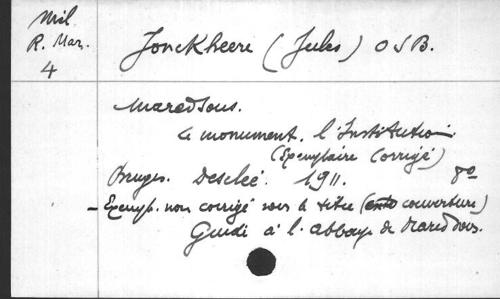 Mil
R. Mar.
4
Jonckheere (Jules) OSB.
Maredsous.
Le monument. l'Institution
(Exemplaire corrigé)
Bruges. Desclée. 1911. 8o
- Exempl. non corrigé sous le titre (couverture)
Guide à l'abbaye de Maredsous.